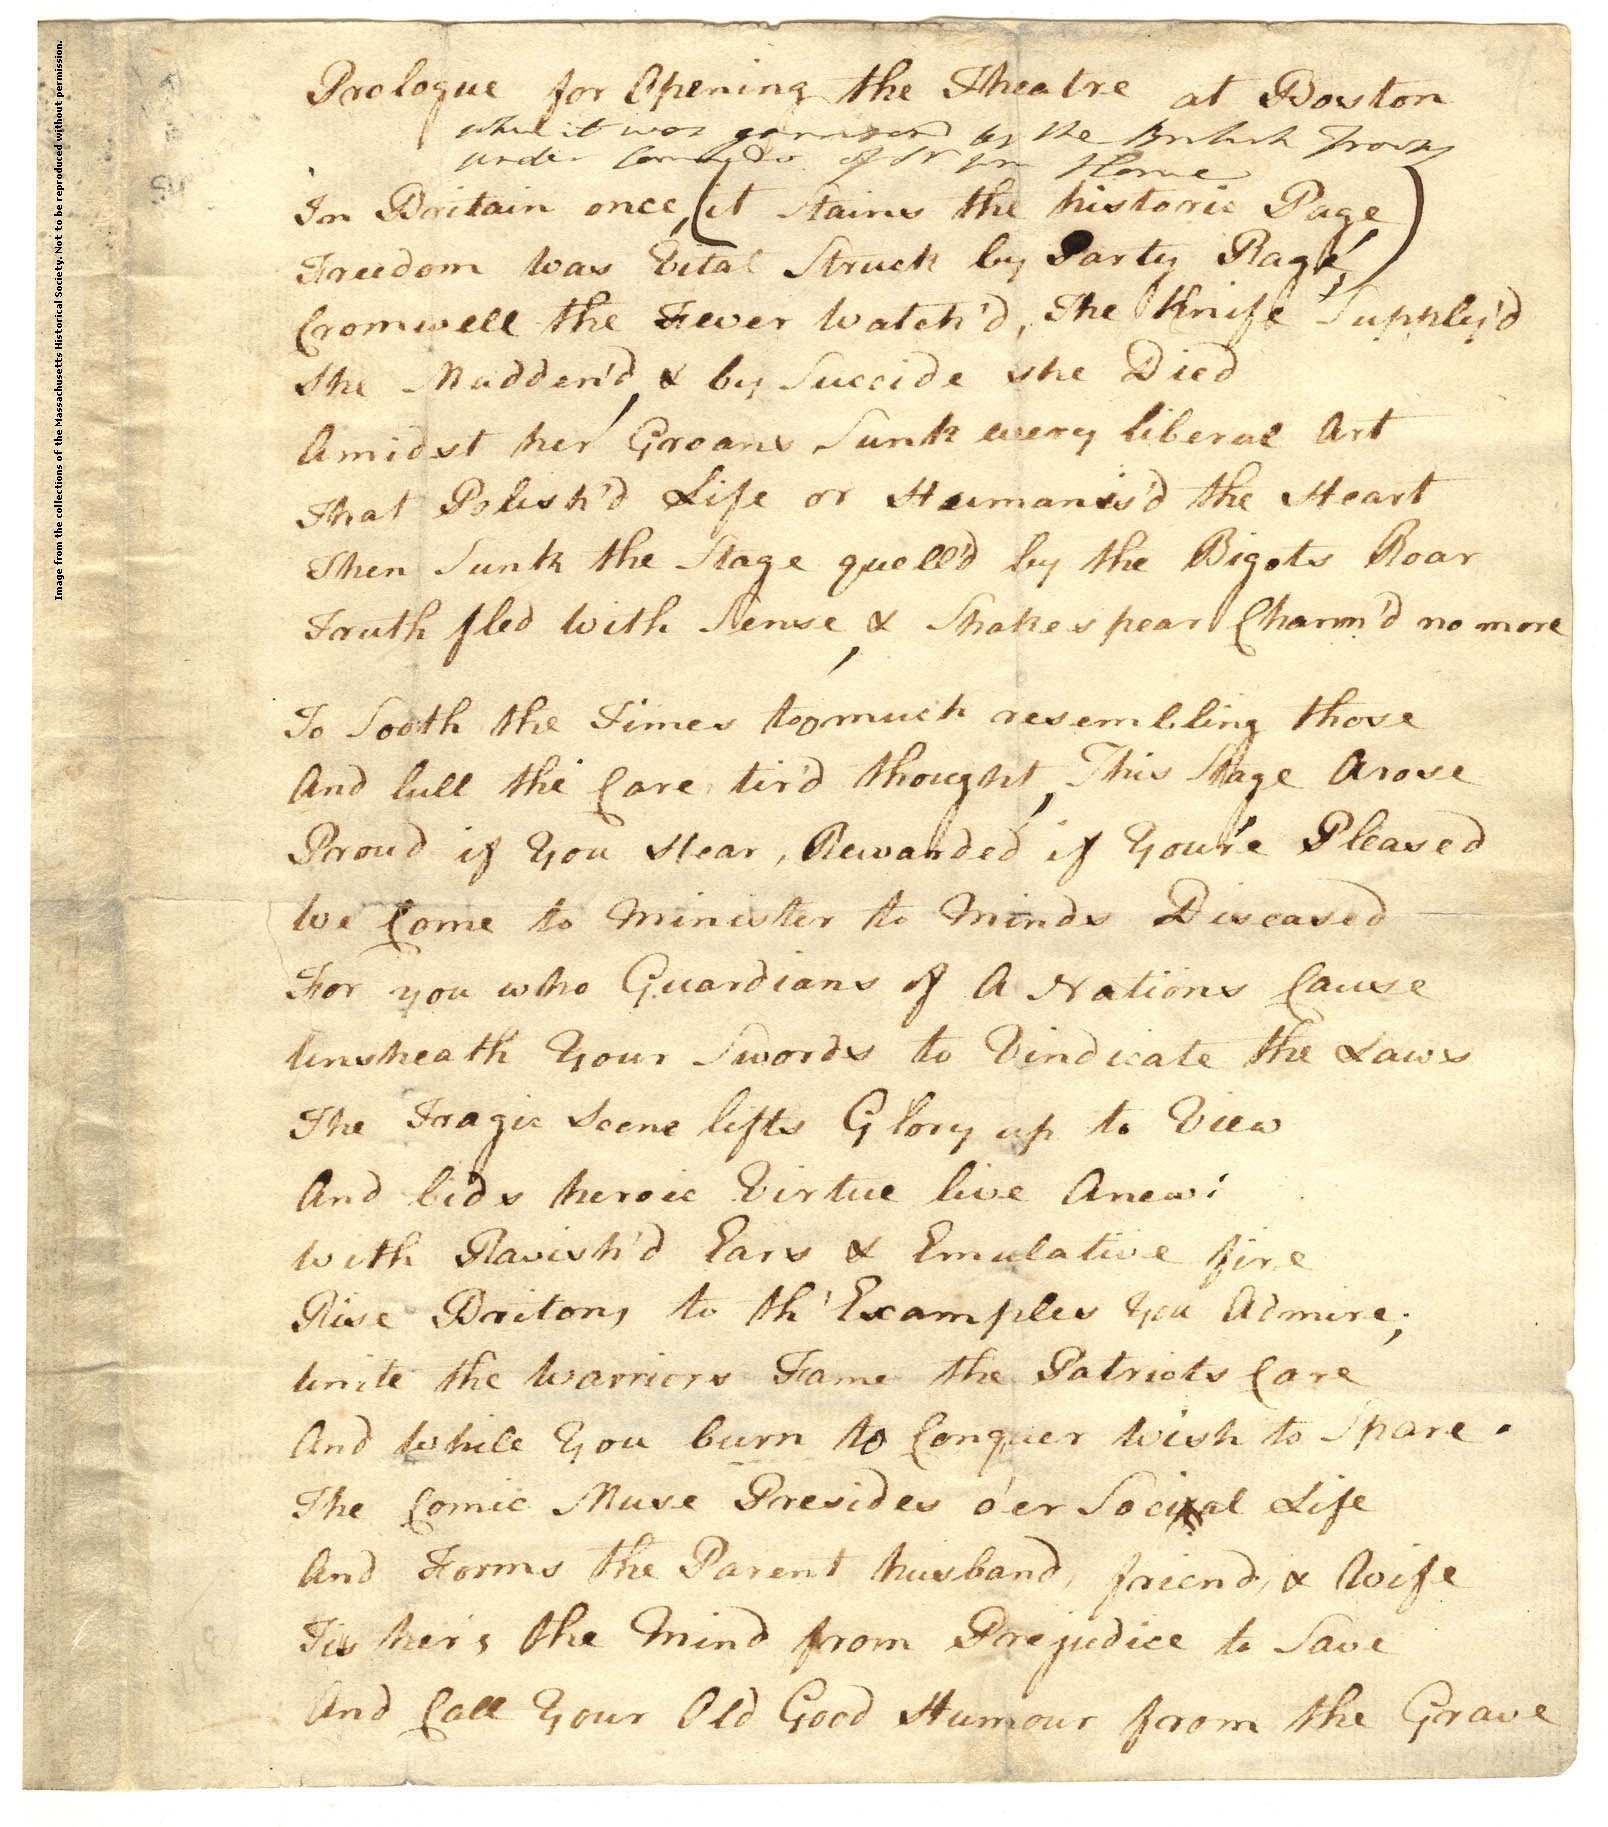 Prologue for Opening the Theatre at Boston
while it was garrisoned by the British Troops
under Comm of Sr Wm Howe
In Britain once, (it stains the historic Page)
Freedom was Vital Struck by Party Rage,
Cromwell the Fever Watch'd, The Knife Supply'd
She Madden'd, & by Suicide she Died
Amidst her Groans Sunk every liberal Art
That Polish'd Life or Humanis'd the Heart
Then Sunk the Stage quell'd by the Bigots Roar
Truth fled With Sense, & Shakespear Charm'd no more
To Sooth the Times too much resembling those
And lull the Care tir'd thought, This Stage Arose
Proud if You Hear, Rewarded if You're Pleased
We Come to Minister to Minds Diseased
For you who Guardians of A Nations Cause
Unsheath Your Swords to Vindicate the Laws
The Tragic Scene lifts Glory up to View
And bids heroic Virtue live Anew:
With Ravish'd Ears & Emulative fire
Rise Britons to th' Examples You Admire;
Unite the Warriors Fame the Patriots Care
And While You burn to Conquer Wish to Spare.
The Comic Muse Presides o'er Social Life
And Forms the Parent husband, friend, & Wife
Tis hers the Mind from Prejudice to Save
And Call Your Old Good Humour from the Grave
Image from the collections of the Massachusetts Historical Society. Not to be reproduced without permission.